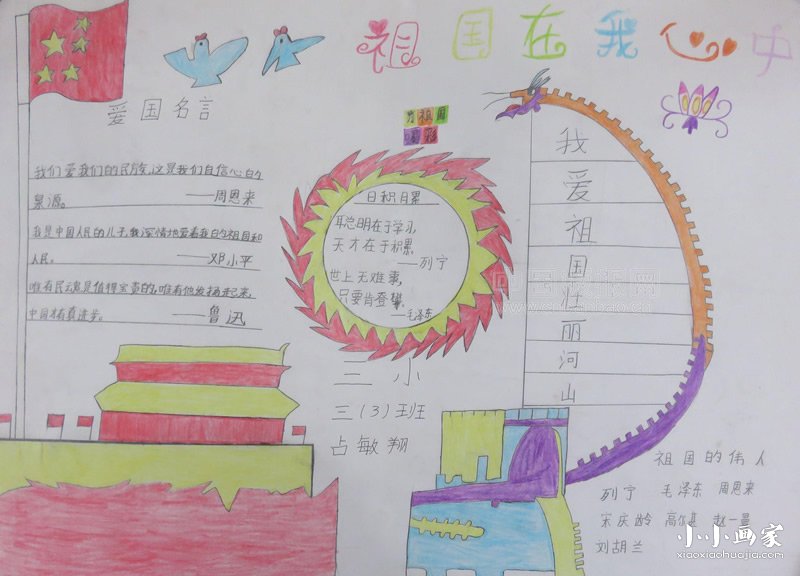 祖国在我心中
爱国名言
我们爱我们的民族,这是我们自信心的
泉源。 ——周恩来
我是中国人民的儿子,我深情地爱着我的祖国和
人民。 ——邓小平
唯有民魂是值得宝贵的,唯有他发扬起来,
中国才有真进步。 ——鲁迅
为祖国
喝彩
日积月累
聪明在于学习,
天才在于积累。
——列宁
世上无难事,
只要肯登攀。
——毛泽东
我
爱
祖
国
壮
丽
河
山
三小
三(3)班
占敏翔
祖国的伟人
列宁 毛泽东 周恩来
宋庆龄 高尔基 赵一曼
刘胡兰
小小画家
xiaoxiaohuajia.com